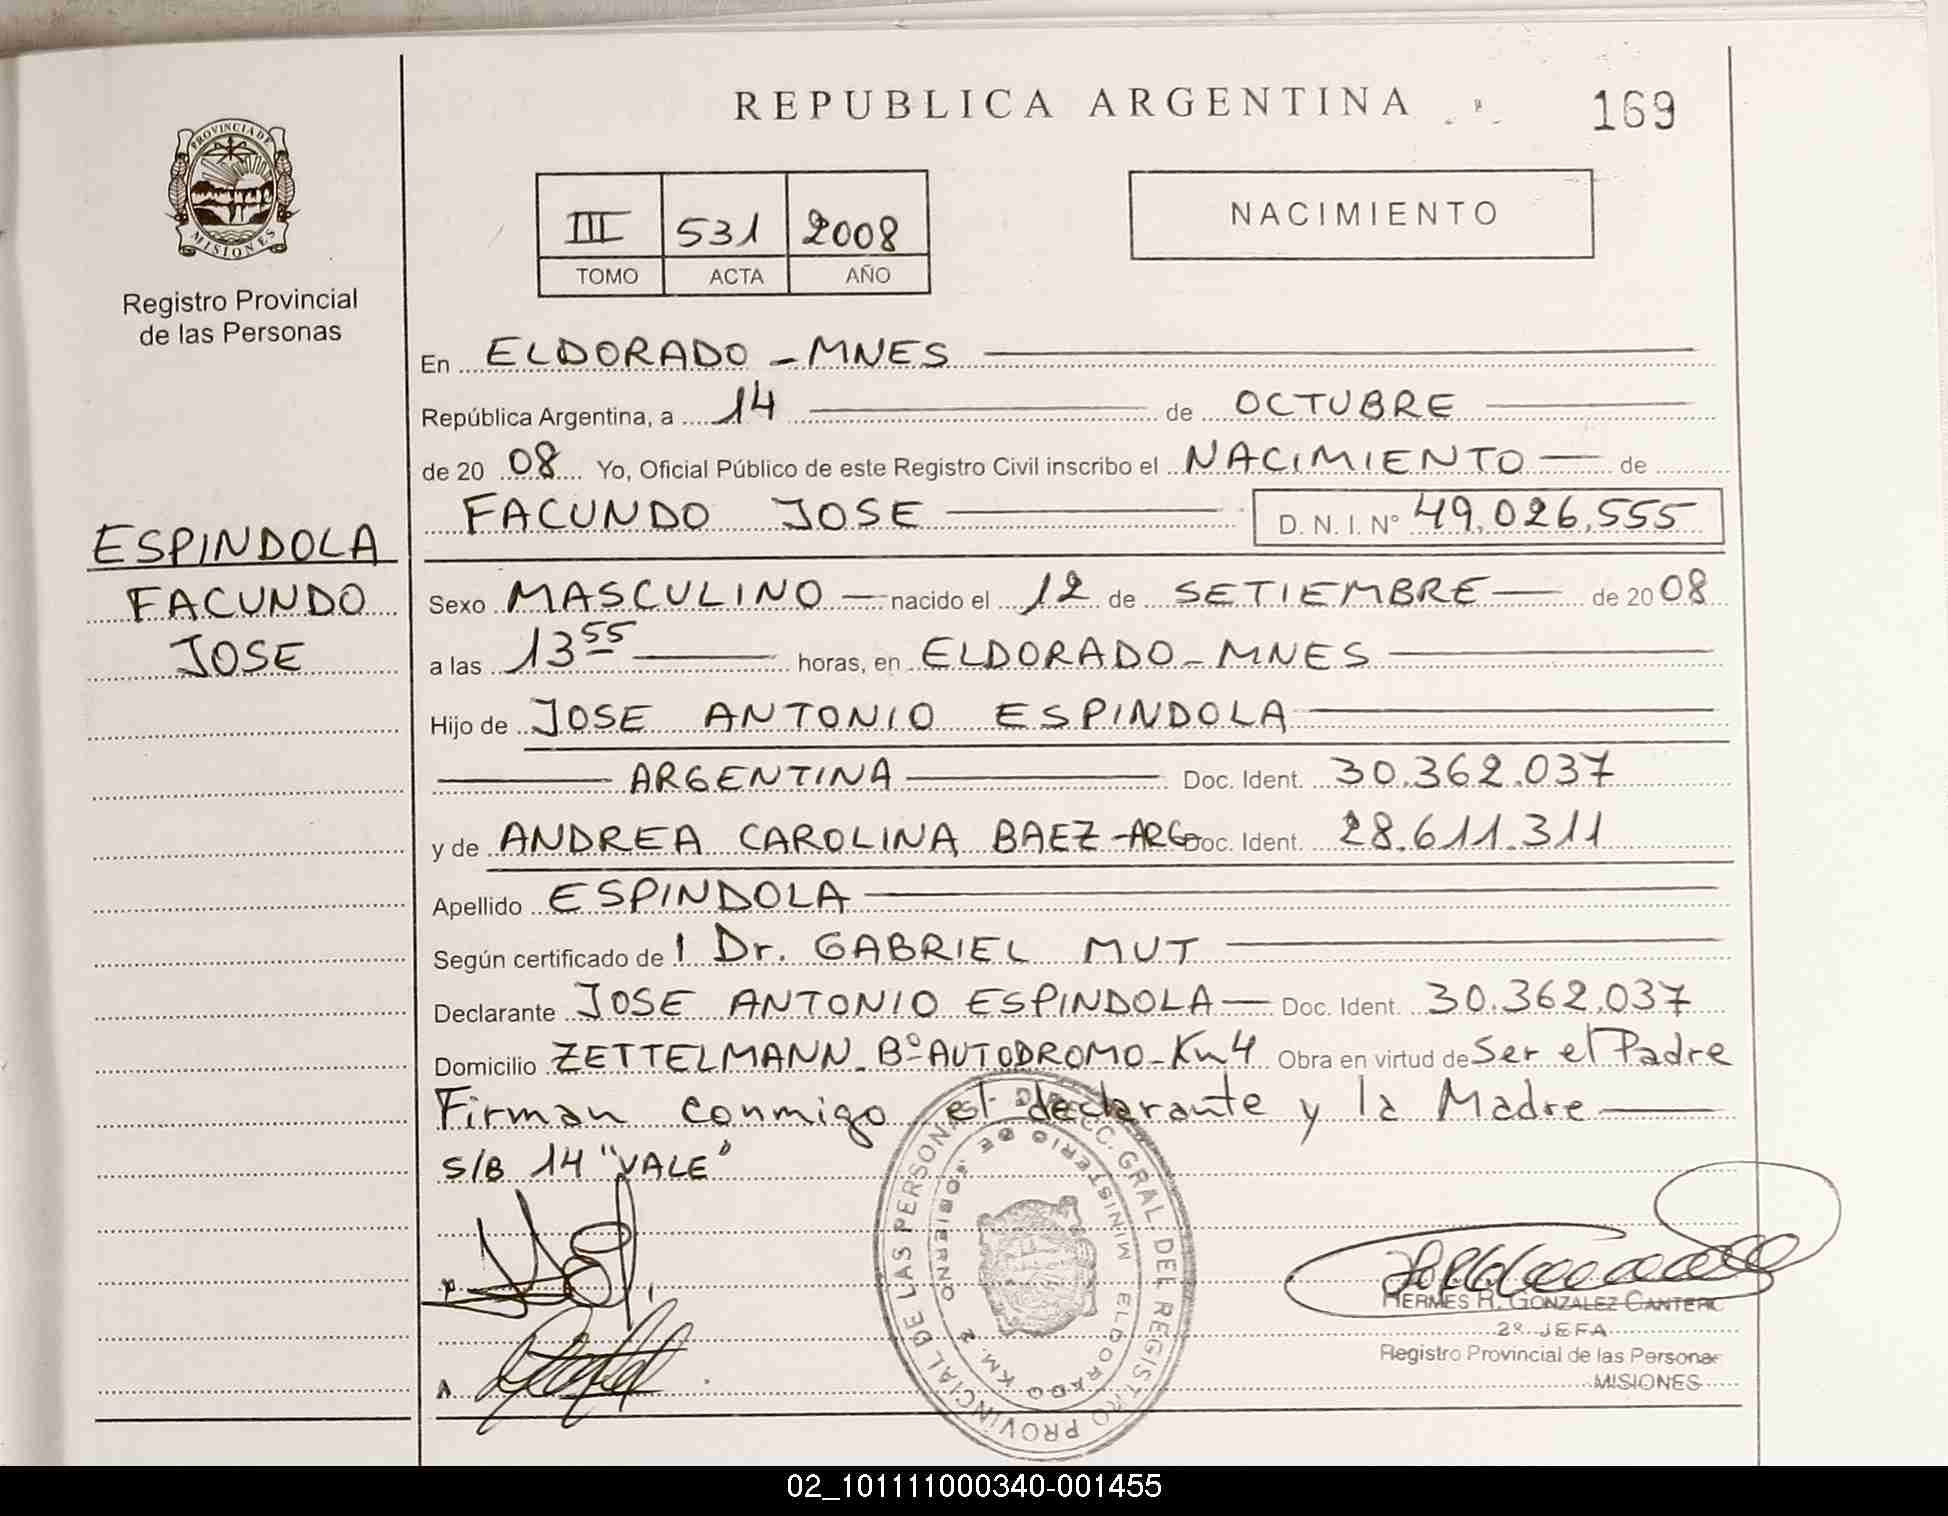 REPUBLICA ARGENTINA
169
PROVINCIA DE
MISIONES
Registro Provincial
de las Personas
III 531 2008
TOMO ACTA AÑO
NACIMIENTO
En ELDORADO - MNES
República Argentina, a 14 de OCTUBRE
de 20 08 Yo, Oficial Público de este Registro Civil inscribo el NACIMIENTO de
FACUNDO JOSE D. N. I. N° 49.026.555
ESPINDOLA
FACUNDO
JOSE
Sexo MASCULINO nacido el 12 de SETIEMBRE de 2008
a las 13 55 horas, en ELDORADO - MNES
Hijo de JOSE ANTONIO ESPINDOLA
ARGENTINA Doc. Ident. 30.362.037
y de ANDREA CAROLINA BAEZ - ARG Doc. Ident. 28.611.311
Apellido ESPINDOLA
Según certificado de 1 Dr. GABRIEL MUT
Declarante JOSE ANTONIO ESPINDOLA Doc. Ident. 30.362.037
Domicilio ZETTELMANN - Bº AUTODROMO - Km 4 Obra en virtud de Ser el Padre
Firman conmigo el declarante y la Madre
S/B 14 "VALE"
DIRECC. GRAL. DEL REGISTRO PROVINCIAL DE LAS PERSONAS
MINISTERIO DE GOBIERNO
ELDORADO KM. 2
HERMES R. GONZALEZ CANTERO
2º JEFA
Registro Provincial de las Personas
MISIONES
02_101111000340-001455